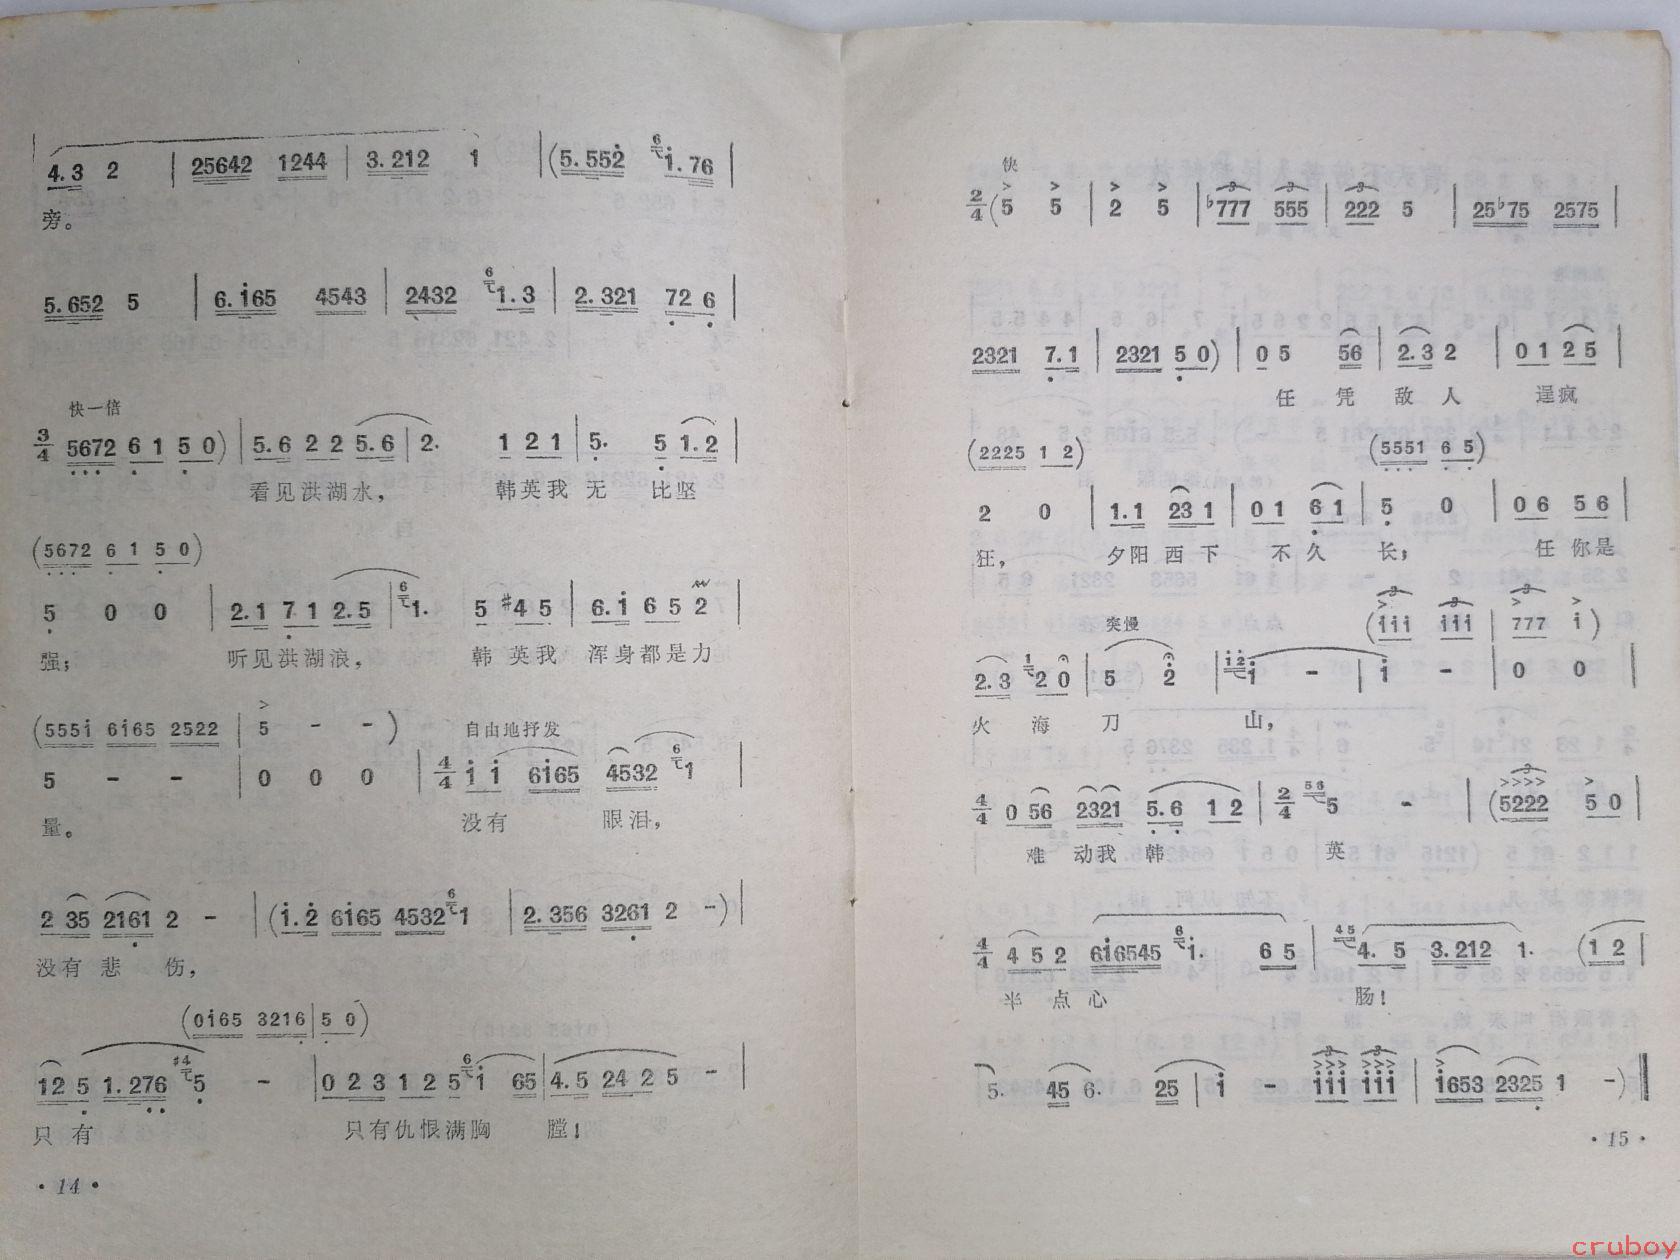 4.3 2 | 25642 1244 | 3.212 1 | (5.552 6 1.76 |
旁。
5.652 5 | 6.165 4543 | 2432 6 1.3 | 2.321 726 |
快一倍
3/4 5672 61 50) | 5.6 22 5.6 | 2. 121 | 5. 5 1.2 |
看见洪湖水， 韩英我 无 比坚
(5672 61 50)
5 0 0 | 2.1 71 2.5 | 6 1. 5 #45 | 6.1 65 2 |
强； 听见洪湖浪， 韩英我 浑身都是力
(5551 6165 2522 | 5 - -) 自由地抒发
5 - - | 0 0 0 | 4/4 1 1 6165 4532 6 1 |
量。 没有 眼泪，
2 35 2161 2 - | (1.2 6165 4532 6 1 | 2.356 3261 2 -) |
没有 悲 伤，
(0165 3216 | 50)
12 5 1.276 #4 5 - | 023 125 6 1 65 | 4.5 24 25 - |
只有 只有仇恨满胸 膛！
· 14 ·
快
2/4 (5 5 | 2 5 | ♭777 555 | 222 5 | 25♭75 2575 |
2321 7.1 | 2321 50) | 05 56 | 2.3 2 | 01 25 |
任 凭 敌 人 逞疯
(2225 12) (5551 65)
2 0 | 1.1 231 | 01 61 | 5 0 | 06 56 |
狂， 夕阳 西下 不久 长； 任 你是
突慢 (111 111 | 777 1)
2.3 1 20 | 5 2 | 12 1 - | 1 - | 0 0 |
火 海 刀 山，
4/4 056 2321 5.6 12 | 2/4 56 5 - | (5222 50 |
难 动我 韩 英
4/4 452 616545 6 1. 65 | 45 4. 5 3.212 1. (12 |
半 点 心 肠！
5. 45 6. 25 | 1 - 111 111 | 1653 2325 1 -) ‖
· 15 ·
cruboy